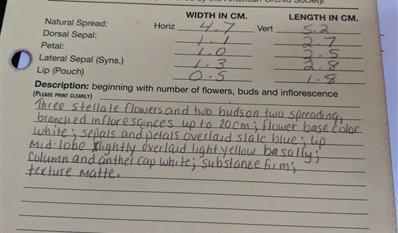 by the American Orchid Society.
WIDTH IN CM. LENGTH IN CM.
Natural Spread: Horiz 4.7 Vert 5.2
Dorsal Sepal: 1.1 2.7
Petal: 1.0 2.5
Lateral Sepal (Syns.) 1.3 2.8
Lip (Pouch) 0.5 1.8
Description: beginning with number of flowers, buds and inflorescence
(PLEASE PRINT CLEARLY)
Three stellate flowers and two buds on two spreading,
branched inflorescences up to 20cm; flower base color
white; sepals and petals overlaid slate blue; lip
mid-lobe slightly overlaid light yellow basally;
column and anther cap white; substance firm;
texture matte.